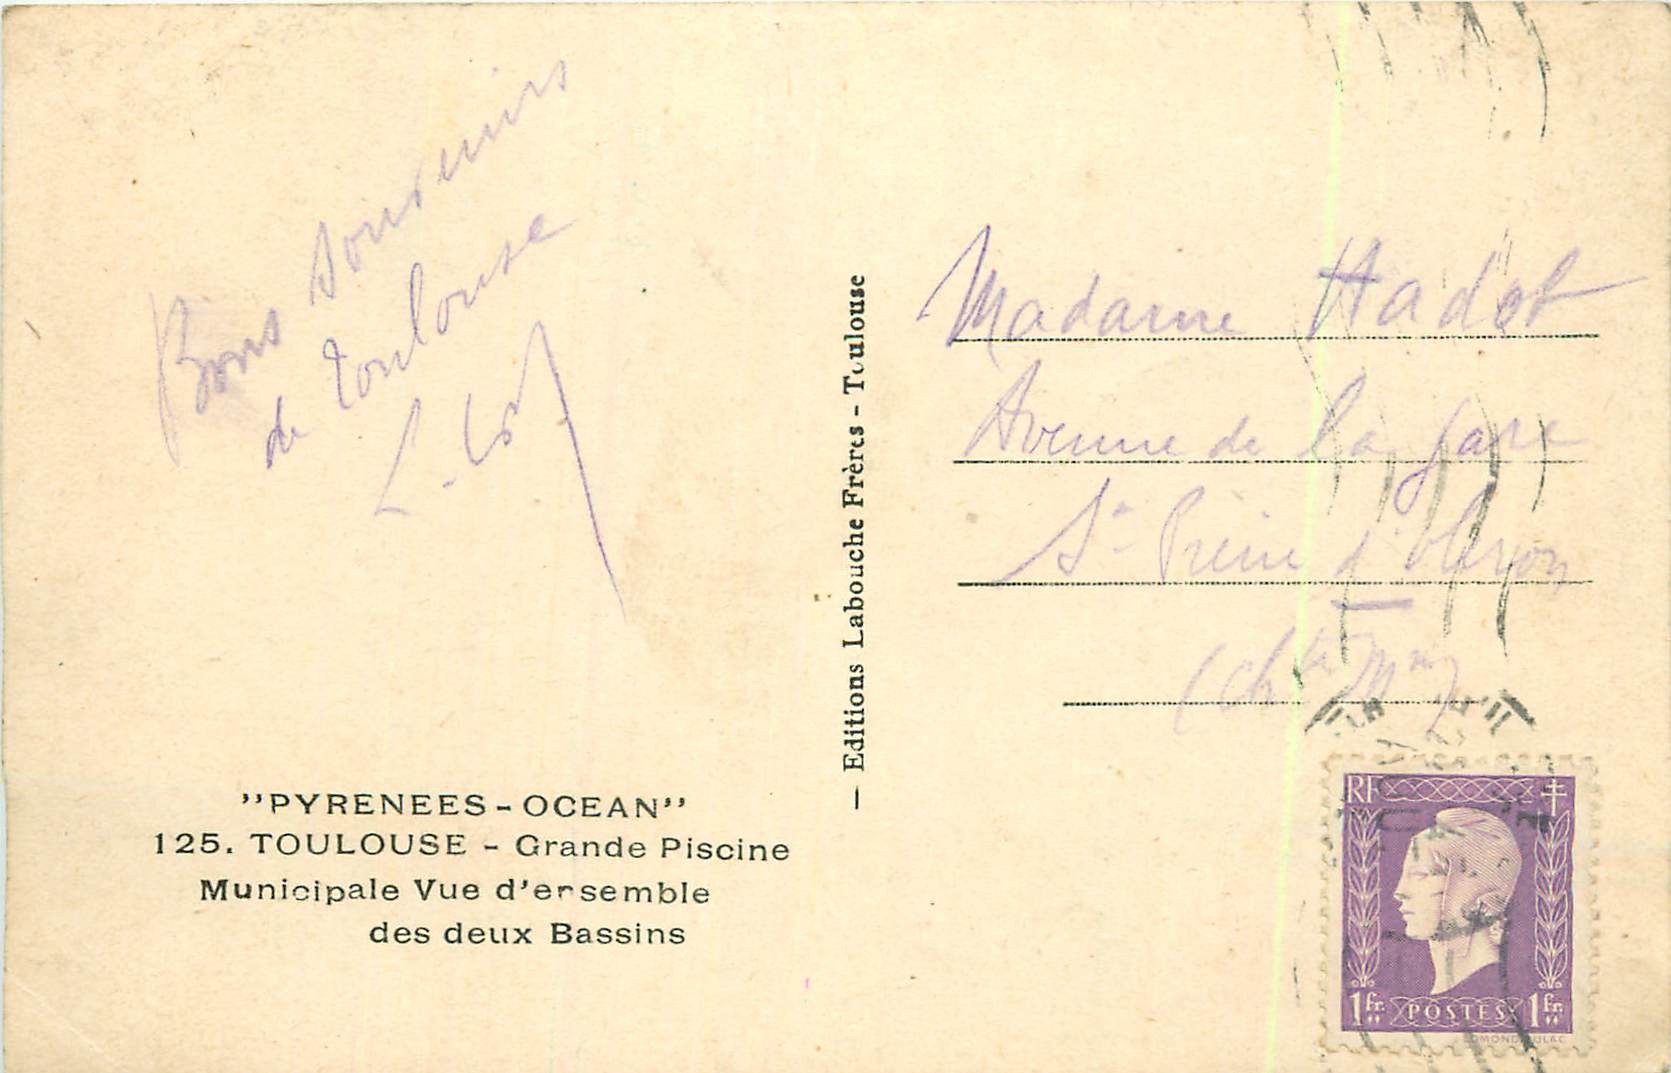 Bons souvenirs
de Toulouse
"PYRENEES - OCEAN"
125. TOULOUSE - Grande Piscine
Municipale Vue d'ensemble
des deux Bassins
— Editions Labouche Frères - Toulouse
Madame Hadot
Avenue de la gare
St Pierre d'Oleron
(Chte Mme)
RF
1fr. POSTES 1fr.
EDMOND DULAC